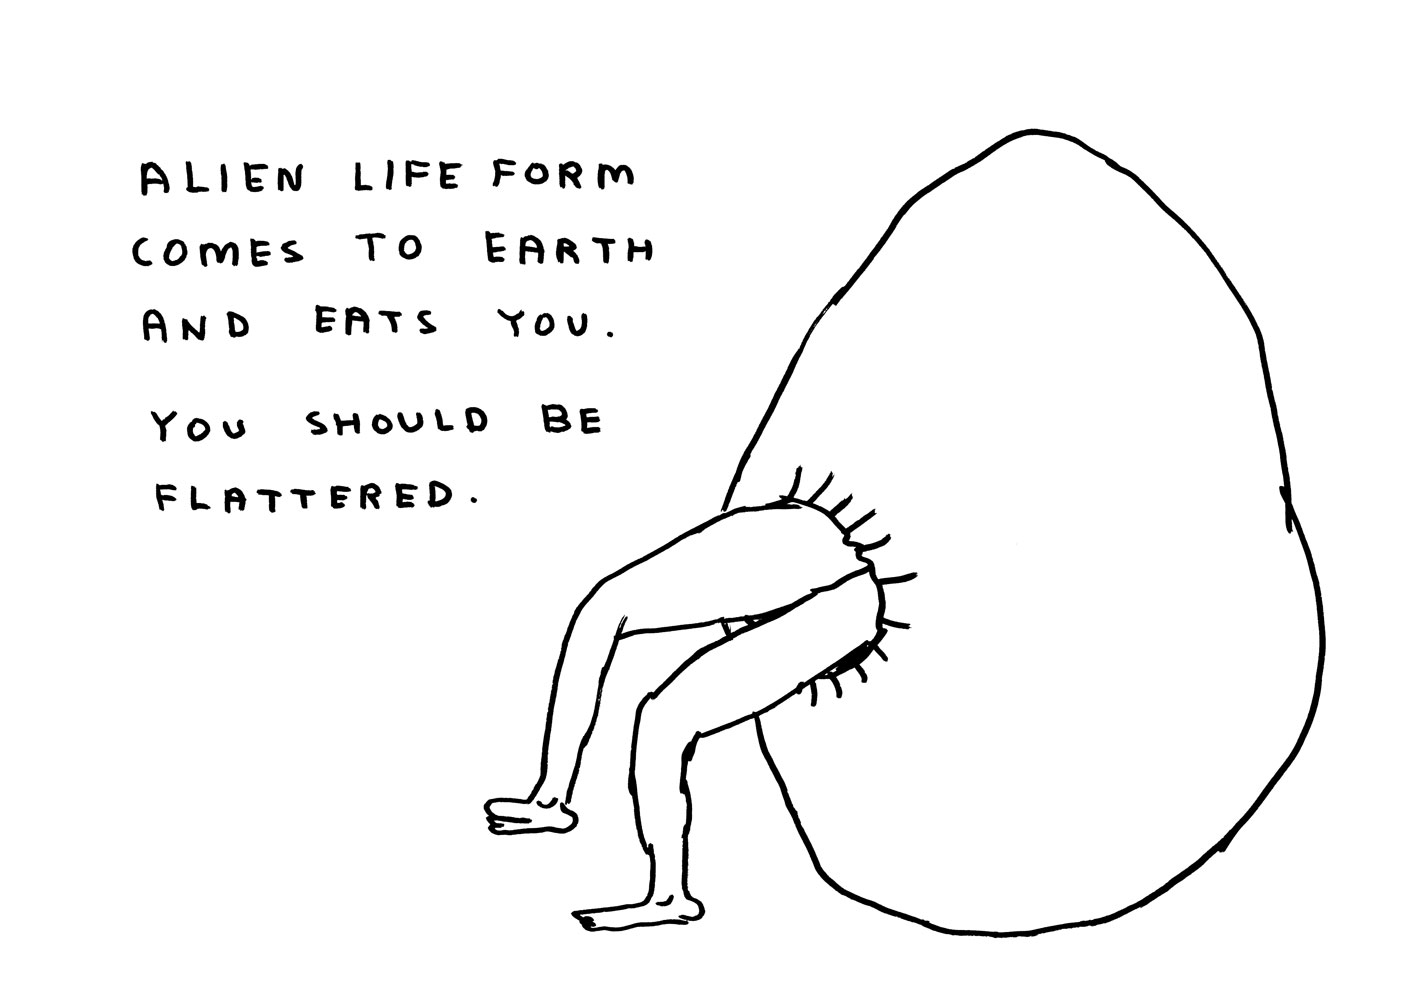 ALIEN LIFE FORM
COMES TO EARTH
AND EATS YOU.
YOU SHOULD BE
FLATTERED.